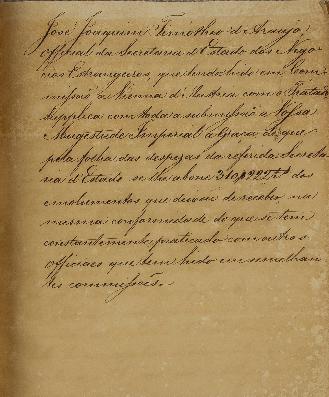 José Joaquim Timotheo de Araujo,
Official da Secretaria d'Estado dos Nego-
cios Estrangeiros, que tendo hido em Com-
missão a Vienna d'Austria com o Tratado
supplica com toda a submissão a Vossa
Magestade Imperial a Graça de que
pela folha das despezas da referida Secreta-
ria d'Estado se lhe abone 310$222 rs. dos
emolumentos que deveria de receber na
mesma conformidade do que se tem
constantemente praticado com outros
Officiaes que tem hido em semelhan-
tes commissões.